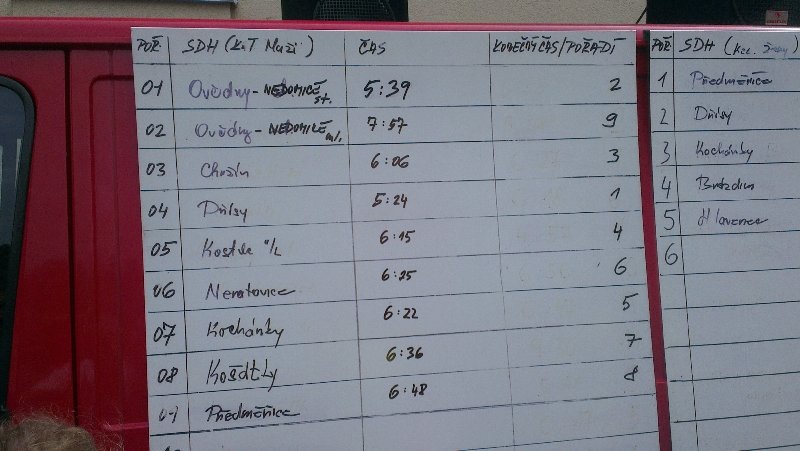 POŘ. SDH (KAT Muži) ČAS KONEČNÝ ČAS/POŘADÍ
01 Ovčáry - NEDOMICE st. 5:39 2
02 Ovčáry - NEDOMICE ml. 7:57 9
03 6:06 3
04 Dřísy 5:24 1
05 Kostelec n/L 6:15 4
06 Neratovice 6:25 6
07 Kochánky 6:22 5
08 Košátky 6:36 7
09 Předměřice 6:48 8
POŘ. SDH
1 Předměřice
2 Dřísy
3 Kochánky
4 Brázdim
5 Hlavenec
6